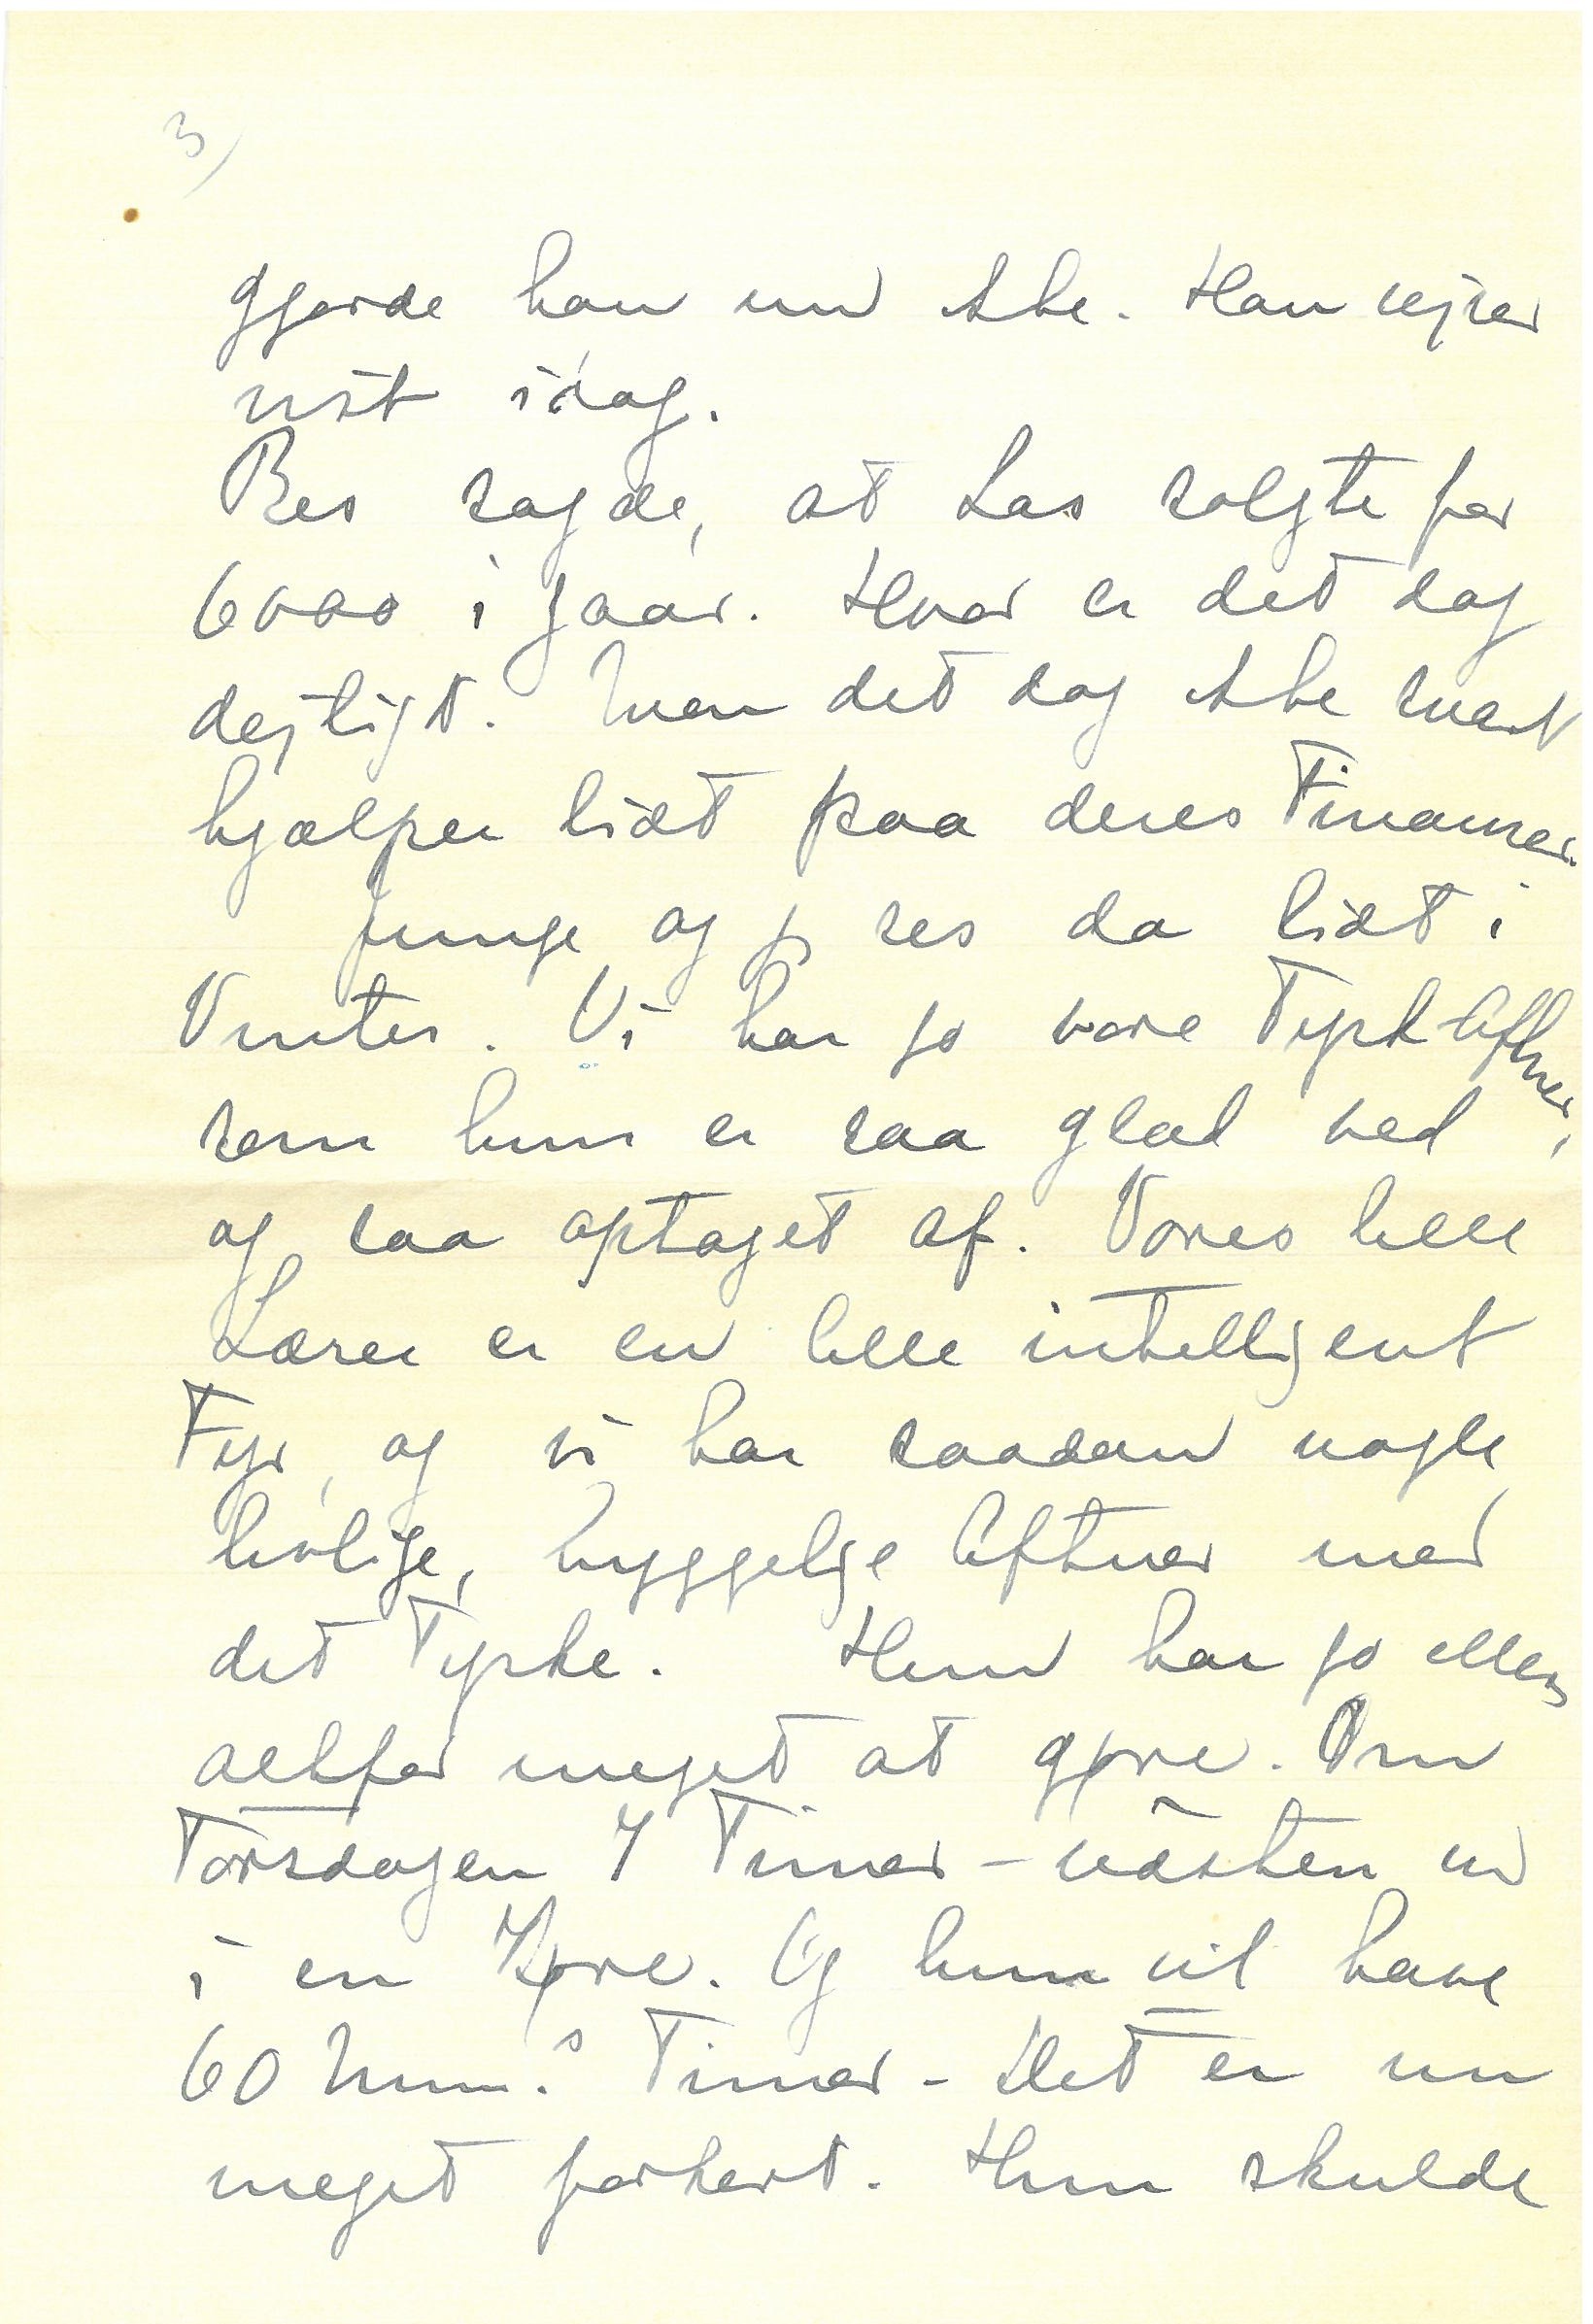 3)
gjorde han nu ikke. Han rejser
vist idag.
Bes sagde, at Las solgte for
6000 i Jaar. Hvor er det dog
dejligt. Men det dog ikke snart
hjælper lidt paa deres Finanser.
Junge og jeg ses da lidt i
Vinter. Vi har jo vore Tysk-Aftner,
som hun er saa glad ved,
og saa optaget af. Vores lille
Lærer er en lille intelligent
Fyr, og vi har saadan nogle
livlige, hyggelige Aftner med
det Tyske. Hun har jo ellers
altfor meget at gøre. Om
Torsdagen 7 Timer - næsten ud
i en Køre. Og hun vil have
60 Min.s Timer - Det er nu
meget forkert. Hun skulde